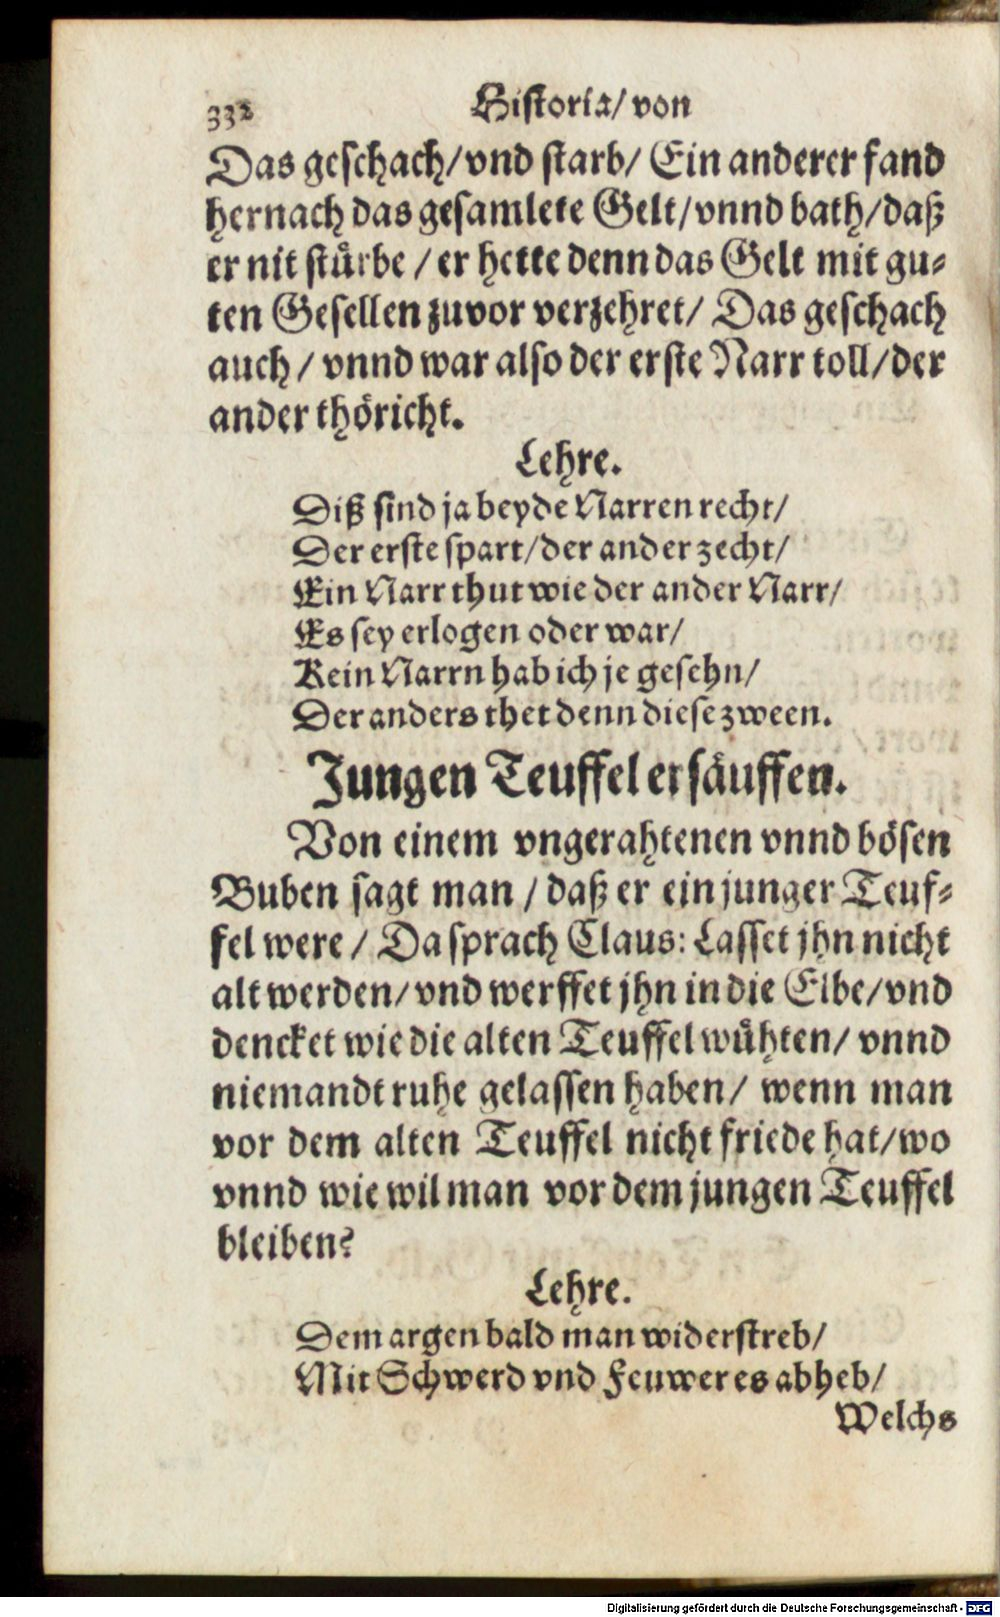 332 Historia/ von
Das geschach/vnd starb/ Ein anderer fand
hernach das gesamlete Gelt/vnnd bath/daß
er nit stürbe / er hette denn das Gelt mit gu-
ten Gesellen zuvor verzehret/ Das geschach
auch / vnnd war also der erste Narr toll/der
ander thöricht.
Lehre.
Diß sind ja beyde Narren recht/
Der erste spart/der ander zecht/
Ein Narr thut wie der ander Narr/
Es sey erlogen oder war/
Kein Narrn hab ich je gesehn/
Der anders thet denn diese zween.
Jungen Teuffel ersäuffen.
Von einem vngerahtenen vnnd bösen
Buben sagt man / daß er ein junger Teuf-
fel were / Da sprach Claus: Lasset jhn nicht
alt werden/vnd werffet jhn in die Elbe/vnd
dencket wie die alten Teuffel wühten/ vnnd
niemandt ruhe gelassen haben/ wenn man
vor dem alten Teuffel nicht friede hat/wo
vnnd wie wil man vor dem jungen Teuffel
bleiben?
Lehre.
Dem argen bald man widerstreb/
Mit Schwerd vnd Feuwer es abheb/
Welchs
Digitalisierung gefördert durch die Deutsche Forschungsgemeinschaft - DFG